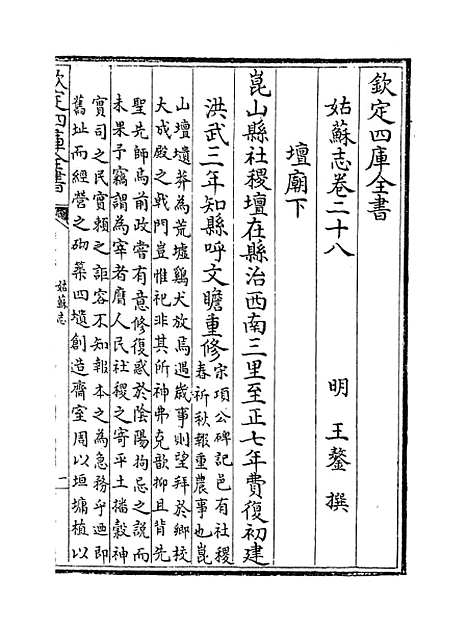 欽定四庫全書
姑蘇志卷二十八
明 王鏊 撰
壇廟下
崑山縣社稷壇在縣治西南三里至正七年費復初建
洪武三年知縣呼文瞻重修宋項公碑記邑有社稷
春祈秋報重農事也崑
山壇遺莽為荒墟鷄犬放焉遇歲事則望拜於鄉校
大成殿之戟門豈惟祀非其所神弗克歆抑且背先
聖先師焉前政嘗有意修復惑於陰陽拘忌之說而
未果予竊謂為宰者膺人民社稷之寄平土播穀神
實司之民實賴之詎容不知報本之為急務乎迺即
舊址而經營之砌築四壝創造齋室周以垣墉植以
欽定四庫全書
姑蘇志